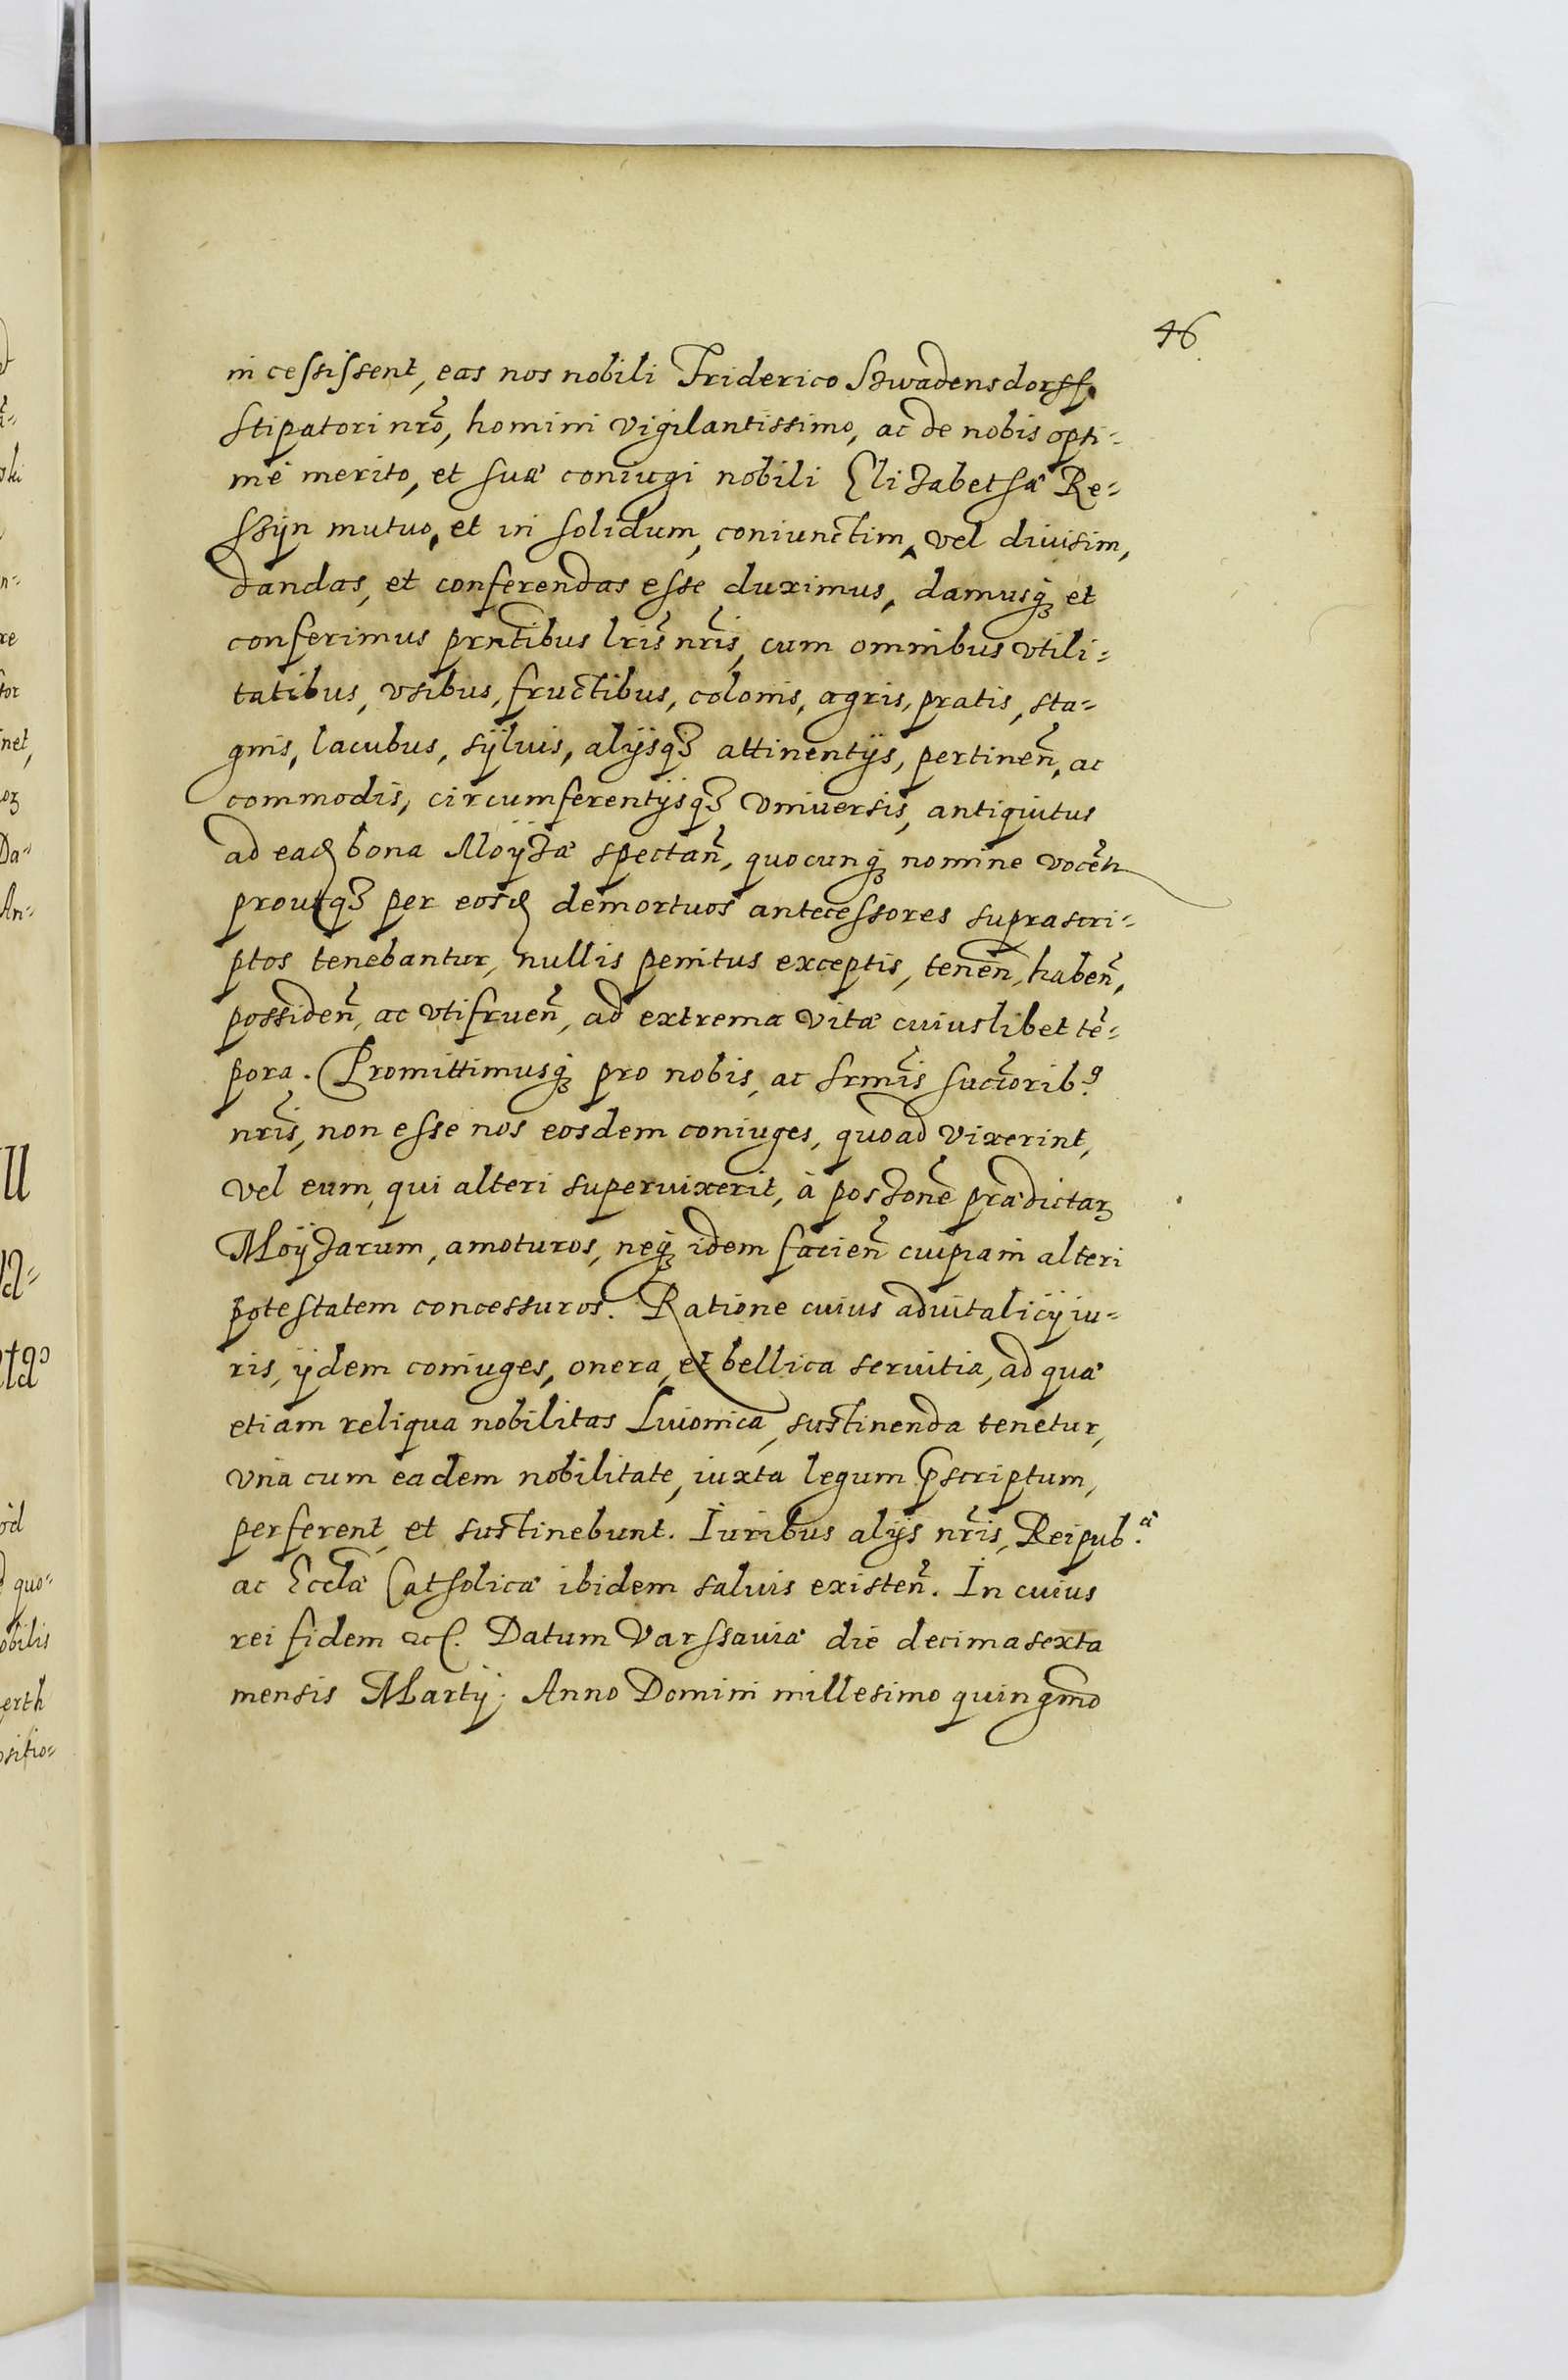 46
in cessissent, eas nos nobili Friderico Szwadensdorff
stipatori nrõ, homini vigilantissimo, ac de nobis opti-
mè merito, et suæ coniugi nobili Elizabethæ Re-
ssÿn mutuo, et in solidum, coniunctim, vel divisim,
dandas, et conferendas esse duximus, damusq; et
conferimus prñtibus lrĩs nrĩs, cum omnibus vtili-
tatibus, vsibus, fructibus, colonis, agris, pratis, sta-
gnis, lacubus, sÿluis, alÿsq; attinentÿs, pertineñ, ac
commodis, circumferentÿsq; vniuersis, antiquitus
ad ead bona Moÿzæ spectañ, quocunq; nomine vocẽtr
proutq; per eosd demortuos antecessores suprascri-
ptos tenebantur, nullis penitus exceptis, teneñ, habeñ,
possideñ, ac vtifrueñ, ad extrema vitæ cuiuslibet tẽ-
pora. Promittimusq; pro nobis, ac srmĩs succtorib9
nrĩs, non esse nos eosdem coniuges, quoad vixerint,
vel eum, qui alteri superuixerit, à poszonẽ prædictaꝝ
Moÿzarum, amoturos, neq; idem facieñ cuipiam alteri
potestatem concessuros. Ratione cuius aduitalicÿ iu-
ris, ÿdem coniuges, onera, et bellica seruitia, ad quæ
etiam reliqua nobilitas Liuonica, sustinenda tenetur,
vnà cum eadem nobilitate, iuxta legum p̃scriptum,
perferent, et sustinebunt. Iuribus alÿs nrĩs, Reipub.æ
ac Ecclæ Catholicæ ibidem saluis existeñ. In cuius
rei fidem &c. Datum Varssauiæ die decima sexta
mensis Martÿ. Anno Domini millesimo quingmo